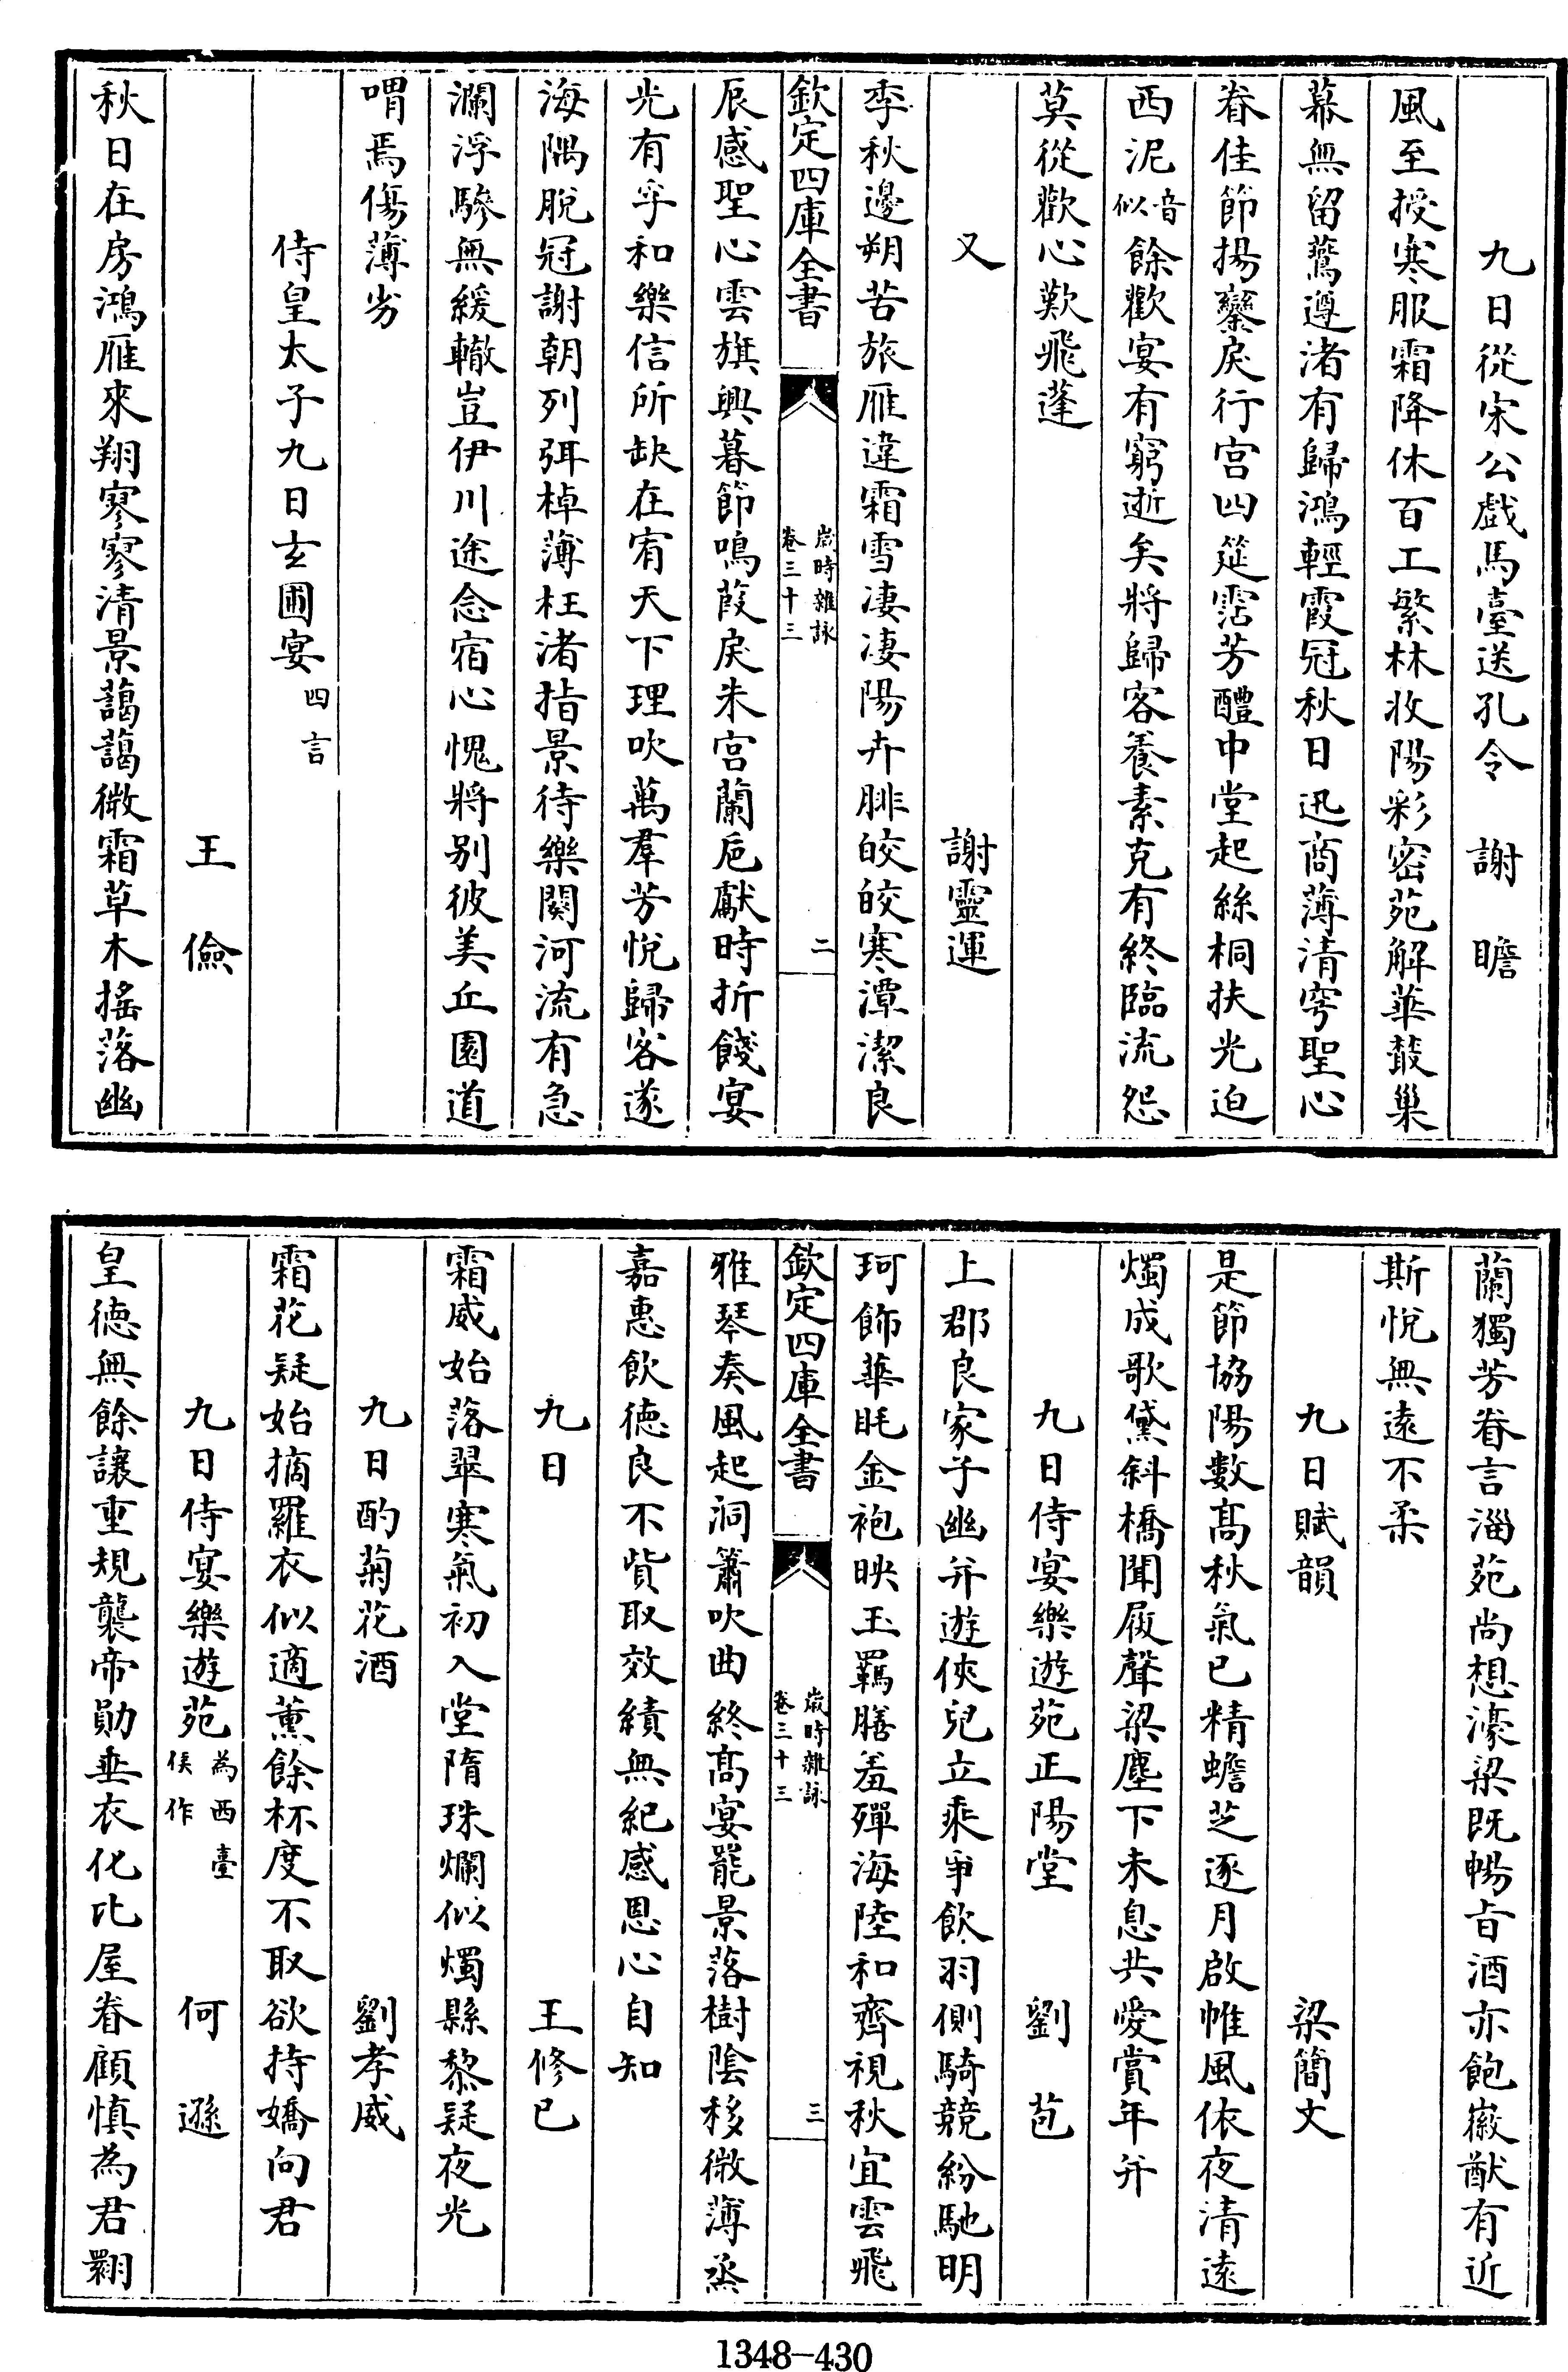 九日從宋公戲馬臺送孔令　謝　瞻
風至授寒服霜降休百工繁林收陽彩密苑解華叢巢
幕無留鷰遵渚有歸鴻輕霞冠秋日迅商薄清穹聖心
眷佳節揚鑾戾行宮四筵霑芳醴中堂起絲桐扶光迫
西泥音似餘歡宴有窮逝矣將歸客養素克有終臨流怨
莫從歡心歎飛蓬
又　謝靈運
季秋邊朔苦旅雁違霜雪凄凄陽卉腓皎皎寒潭潔良
欽定四庫全書　歲時雜詠卷三十三　二
辰感聖心雲旗興暮節鳴葭戾朱宮蘭巵獻時折餞宴
光有孚和樂信所缺在宥天下理吹萬羣芳悅歸客遂
海隅脫冠謝朝列弭棹薄枉渚指景待樂闋河流有急
瀾浮驂無緩轍豈伊川途念宿心愧將别彼美丘園道
喟焉傷薄劣
侍皇太子九日玄圃宴四言
王　儉
秋日在房鴻雁來翔寥寥清景藹藹微霜草木搖落幽
蘭獨芳眷言淄苑尚想濠梁既暢旨酒亦飽徽猷有近
斯悅無遠不柔
九日賦韻　梁簡文
是節協陽數髙秋氣已精蟾芝逐月啟帷風依夜清遠
燭成歌黛斜橋聞履聲梁塵下未息共愛賞年并
九日侍宴樂遊苑正陽堂　劉　苞
上郡良家子幽并遊俠兒立乘爭飲羽側騎競紛馳明
珂飾華眊金袍映玉羈膳羞殫海陸和齊視秋宜雲飛
欽定四庫全書　歲時雜詠卷三十三　三
雅琴奏風起洞簫吹曲終髙宴罷景落樹陰移微薄烝
嘉惠飲德良不貲取效績無紀感恩心自知
九日　王修已
霜威始落翠寒氣初入堂隋珠爛似燭縣黎疑夜光
九日酌菊花酒　劉孝威
霜花疑始摘羅衣似適薰餘杯度不取欲持嬌向君
九日侍宴樂遊苑為西臺侯作　何　遜
皇德無餘讓重規襲帝勛垂衣化比屋眷顧慎為君翾
1348-430